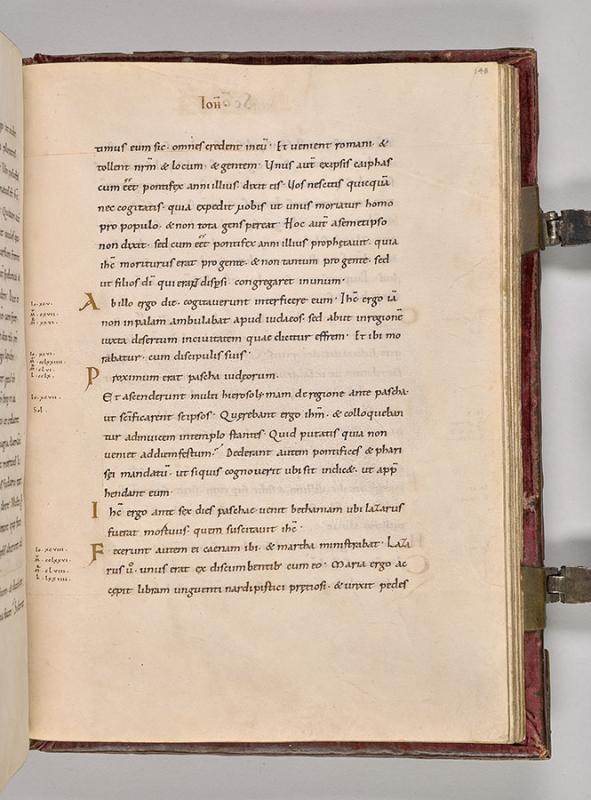 Ioh̄
148
timus eum sic · omnes credent in eū · Et venient romani · &
tollent nr̄m & locum · & gentem · Unus aut̄ ex ipsis caiphas
cum eēt pontifex anni illius dixit eis · Uos nescitis quicquā
nec cogitatis · quia expedit uobis ut unus moriatur homo
pro populo · & non tota gens pereat · Hoc aut̄ a semetipso
non dixit · sed cum eēt pontifex anni illius prophetauit · quia
ih̄c moriturus erat pro gente · & non tantum pro gente · sed
ut filios dī qui erant disp̄si · congregaret in unum ·
Ab illo ergo die · cogitauerunt interficere eum · Ih̄c ergo iā
non in palam ambulabat apud iudaeos · sed abiit in regionē
iuxta desertum in ciuitatem quae dicitur effrem · Et ibi mo
rabatur · cum discipulis suis ·
Proximum erat pascha iudęorum ·
Et ascenderunt multi hierosolymam de regione ante pascha ·
ut sc̄ificarent se ipsos · Quęrebant ergo ih̄m · & colloqueban
tur ad inuicem in templo stantes · Quid putatis quia non
ueniet ad diem festum · Dederant autem pontifices & phari
sęi mandatū · ut si quis cognouerit ubi sit indic& · ut app̄
hendant eum ·
Ih̄c ergo ante sex dies paschae uenit bethaniam ubi lazarus
fuerat mortuus · quem suscitauit ih̄c ·
Fecerunt autem ei caenam ibi · & martha ministrabat · Laza
rus ū · unus erat ex discumbentib; cum eo · Maria ergo ac
cępit libram unguenti nardi pistici prętiosi · & unxit pedes